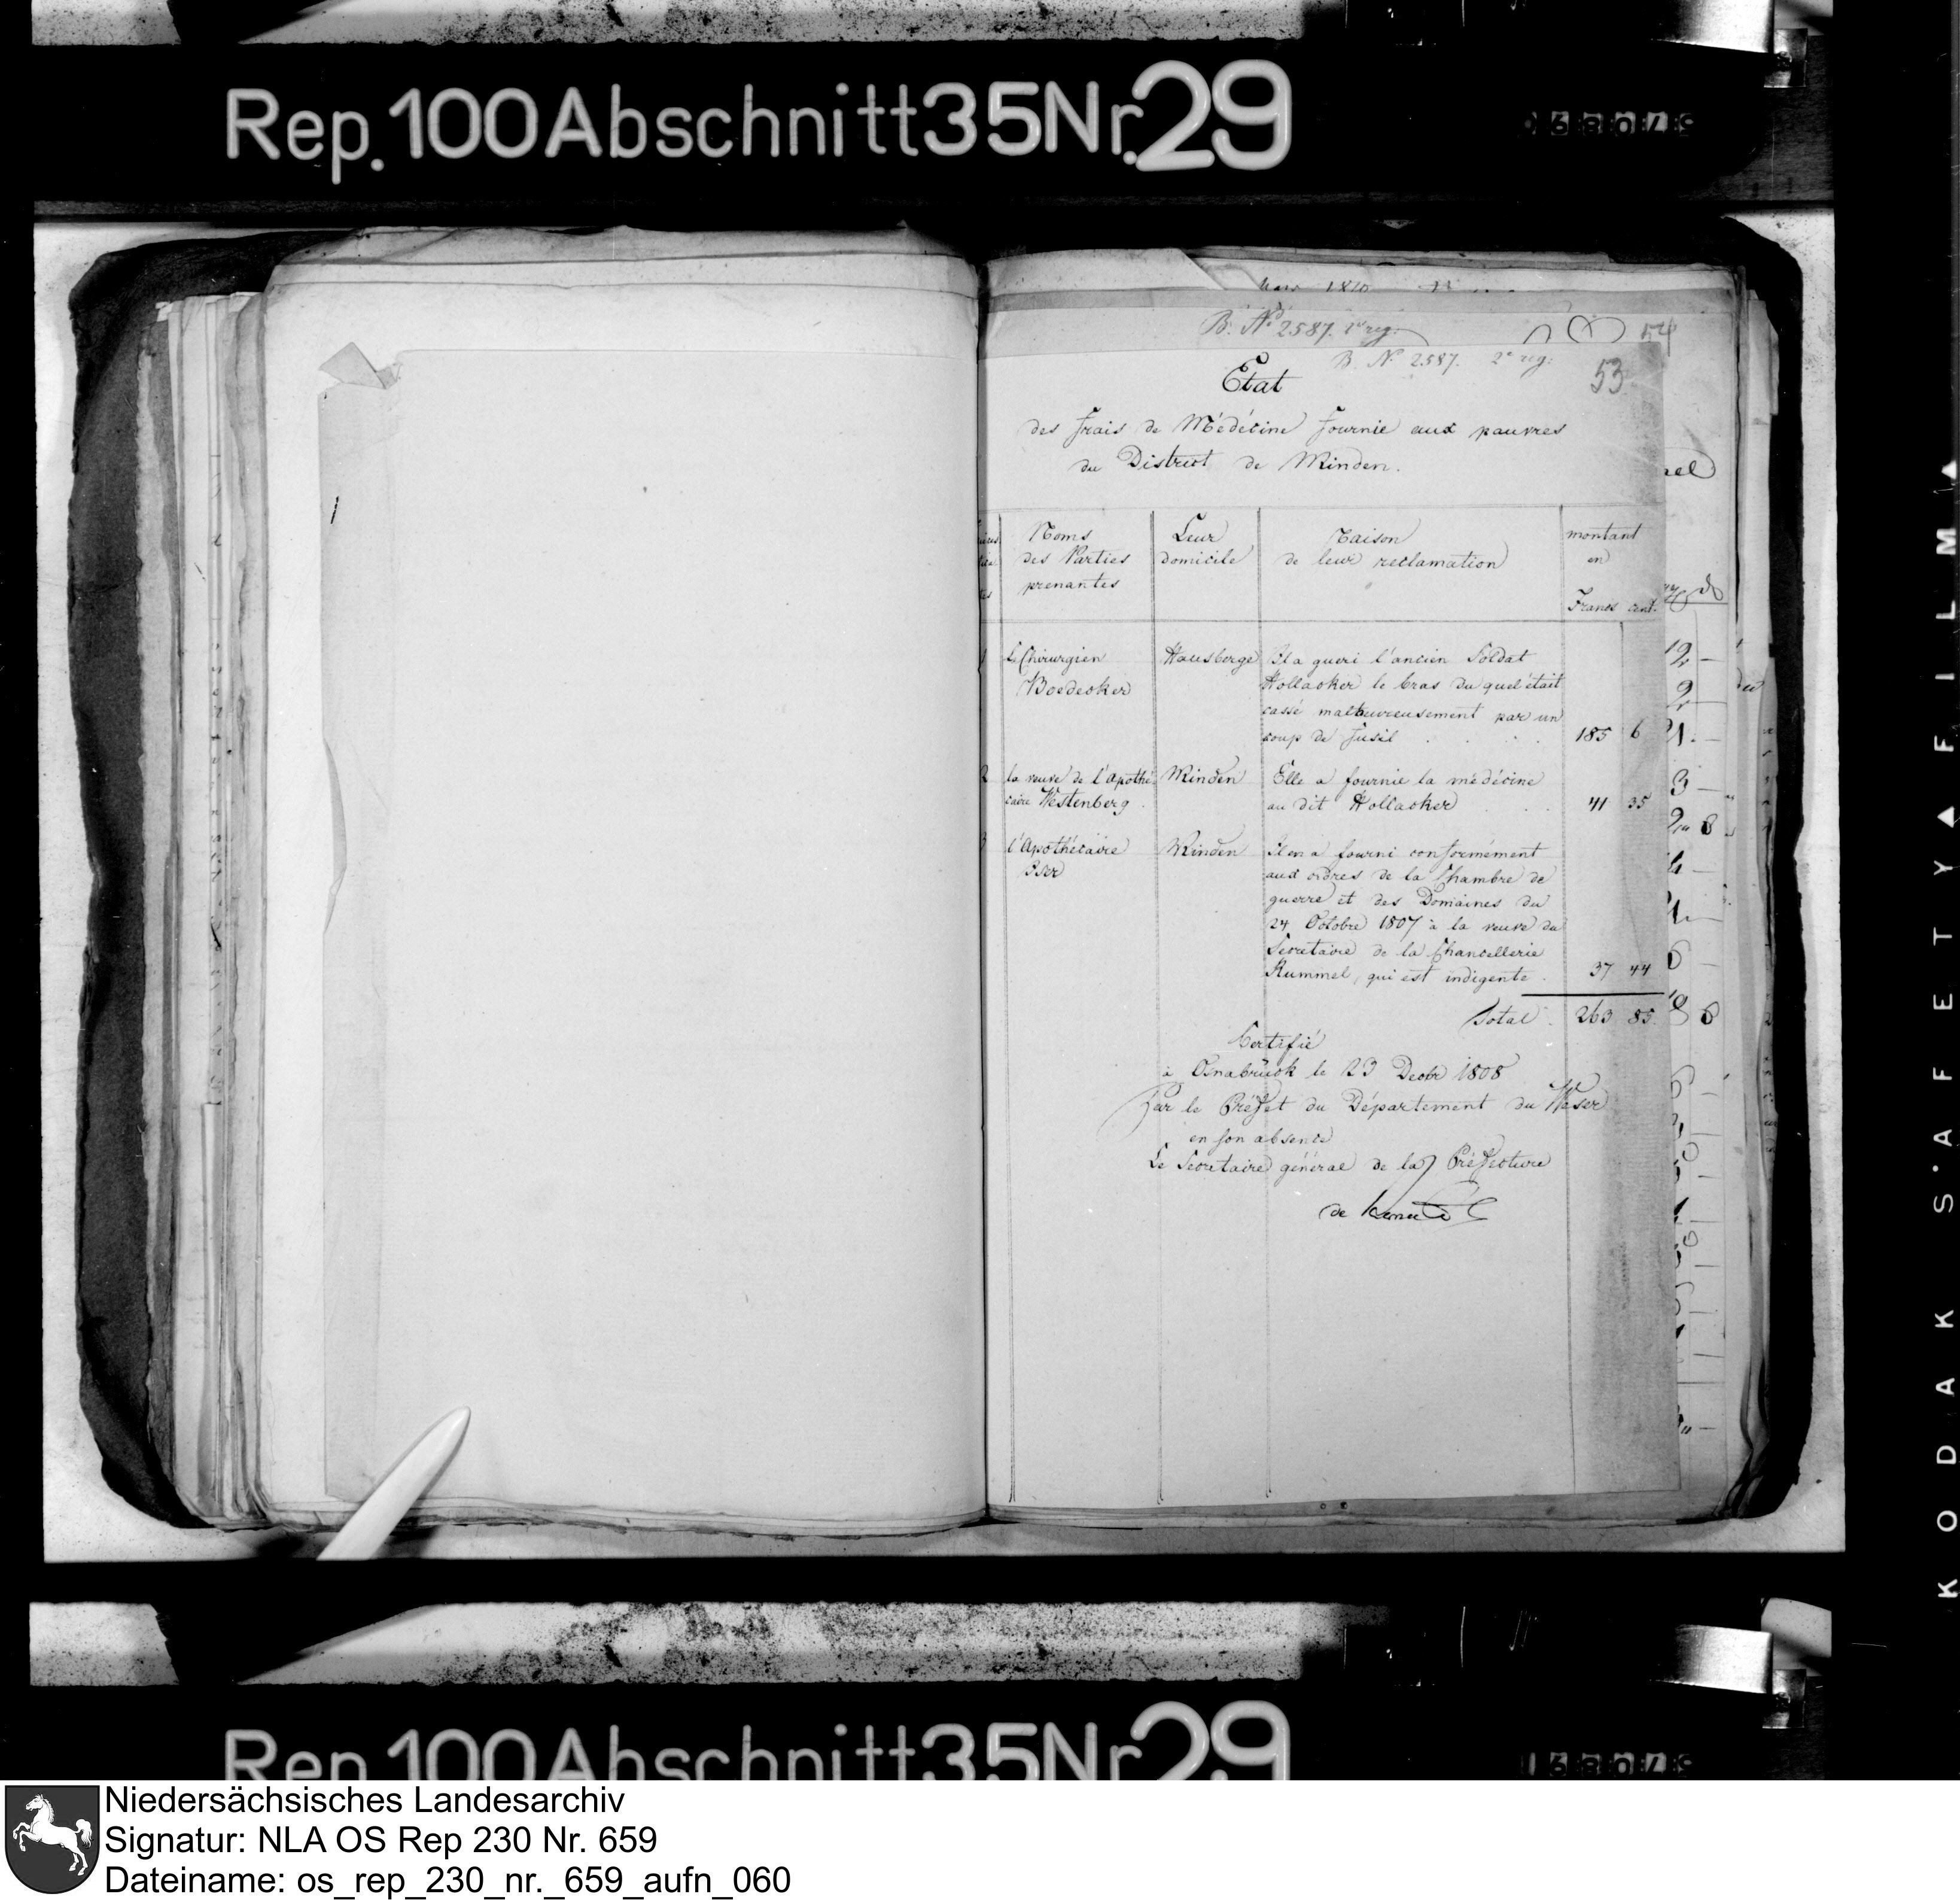 Rep. 100 Abschnitt 35 Nr. 29
B. No 2587. 2e reg.
54
B. No 2587. 2e reg:
53
Etat
des frais de Médécine fournie aux pauvres
du District de Minden.
Noms
des Parties
prenantes
Leur
domicile
Raison
de leur reclamation
montant
en
Francs cent.
1 le Chirurgien
Boedecker
Hausberge
Il a gueri l'ancien Soldat
Hollacker le bras du quel était
cassé malheureusement par un
coup de fusil . . . .
185 6
2 la veuve de l'Apothé-
caire Westenberg.
Minden
Elle a fournie la médécine
au dit Hollacker . . .
41 35
3 l'Apothécaire
Minden
Il en a fourni conformément
aux ordres de la Chambre de
guerre et des Domaines du
24 Octobre 1807 à la veuve du
Secretaire de la Chancellerie
Rummel, qui est indigente .
37 44
Total . 263 85.
Certifié
à Osnabrück le 23 Decbr 1808
Par le Préfet du Département du Weser
en son absence
Le Secretaire général de la Préfecture
de
Rep. 100 Abschnitt 35 Nr. 29
KODAK SAFETY FILM
Niedersächsisches Landesarchiv
Signatur: NLA OS Rep 230 Nr. 659
Dateiname: os_rep_230_nr._659_aufn_060